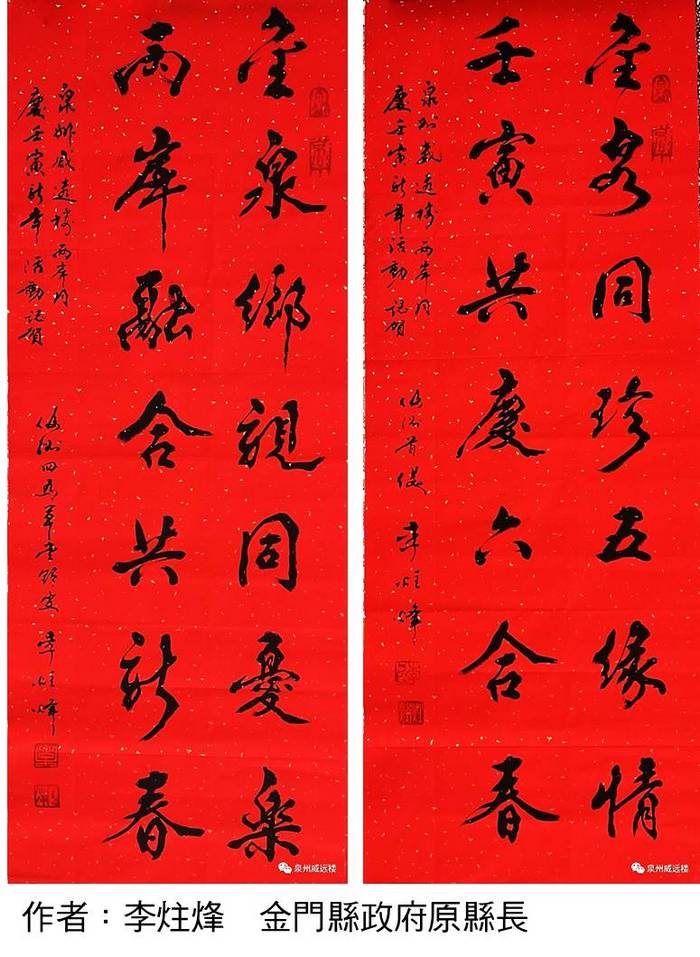 金泉鄉親同憂樂
兩岸融合共新春
泉州威遠樓兩岸同
慶壬寅新年活動誌賀
仙洲四草堂頑叟 李炷烽
金同珍五緣情
壬寅共慶六合春
泉州威遠樓兩岸同
慶壬寅新年活動誌賀
仙洲 李炷烽
泉州威远楼
泉州威远楼
作者：李炷烽 金門縣政府原縣長